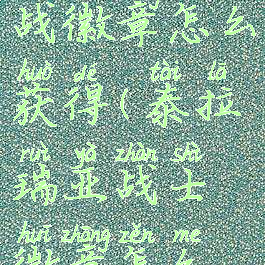 战徽章怎么
huò dé tài lā
获得(泰拉
ruì yà zhàn shì
瑞亚战士
huī zhāng zěn me
徽章怎么